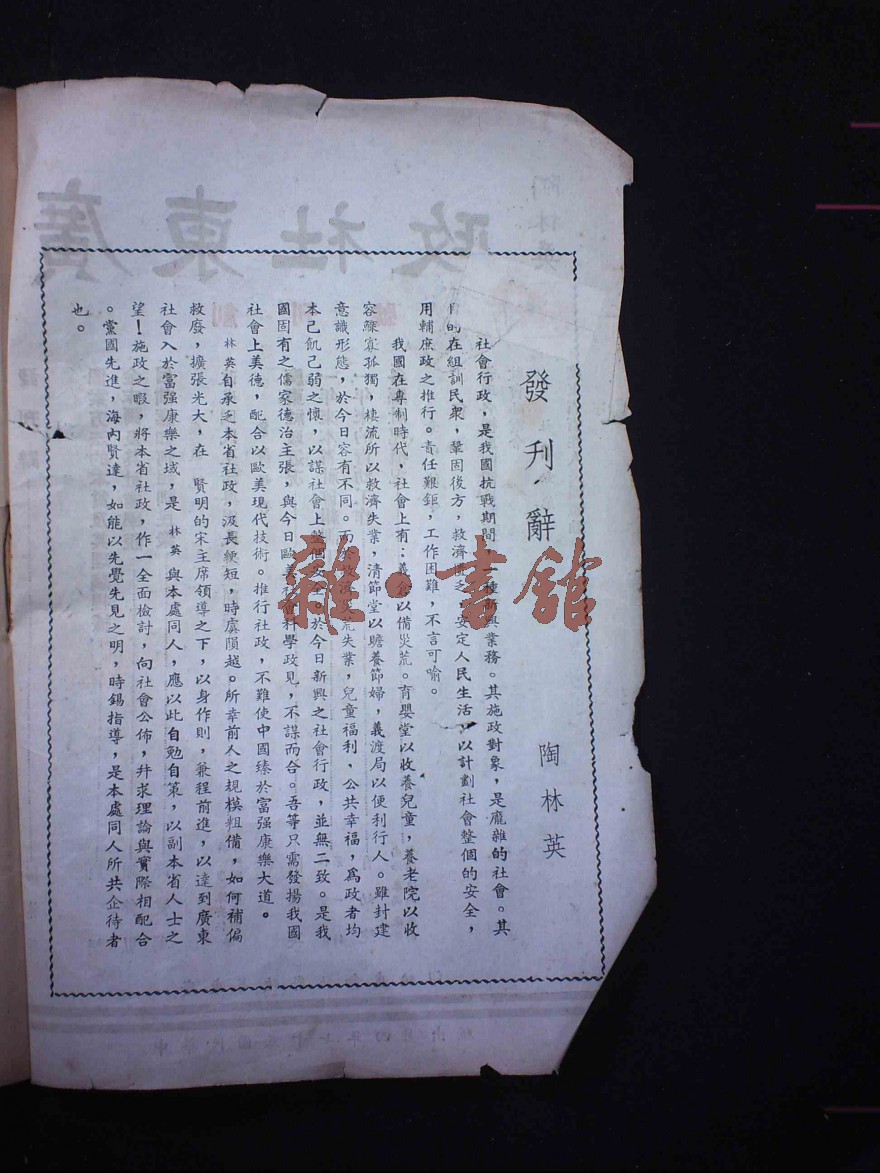 發刊辭
陶林英
社會行政，是我國抗戰期間，一種新興業務。其施政對象，是龐雜的社會。其
目的在組訓民衆，鞏固後方，救濟匱乏，安定人民生活，以計劃社會整個的安全，
用輔庶政之推行。責任艱鉅，工作困難，不言可喻。
我國在專制時代，社會上有：義倉以備災荒。育嬰堂以收養兒童，養老院以收
容鰥寡孤獨，棲流所以救濟失業，清節堂以贍養節婦，義渡局以便利行人。雖封建
意識形態，於今日容有不同。而於救濟災荒失業，兒童福利，公共幸福，爲政者均
本己飢己弱之懷，以謀社會上整個安全。於今日新興之社會行政，並無二致。是我
國固有之儒家德治主張，與今日歐美社會科學政見，不謀而合。吾等只需發揚我國
社會上美德，配合以歐美現代技術。推行社政，不難使中國臻於富强康樂大道。
林英自承乏本省社政，汲長綆短，時虞隕越。所幸前人之規模粗備，如何補偏
救廢，擴張光大，在 賢明的宋主席領導之下，以身作則，兼程前進，以達到廣東
社會入於富强康樂之域，是 林英 與本處同人，應以此自勉自策，以副本省人士之
望！施政之暇，將本省社政，作一全面檢討，向社會公佈，幷求理論與實際相配合
。黨國先進，海內賢達，如能以先覺先見之明，時錫指導，是本處同人所共企待者
也。
雜·書館
廣東社政
創刊號